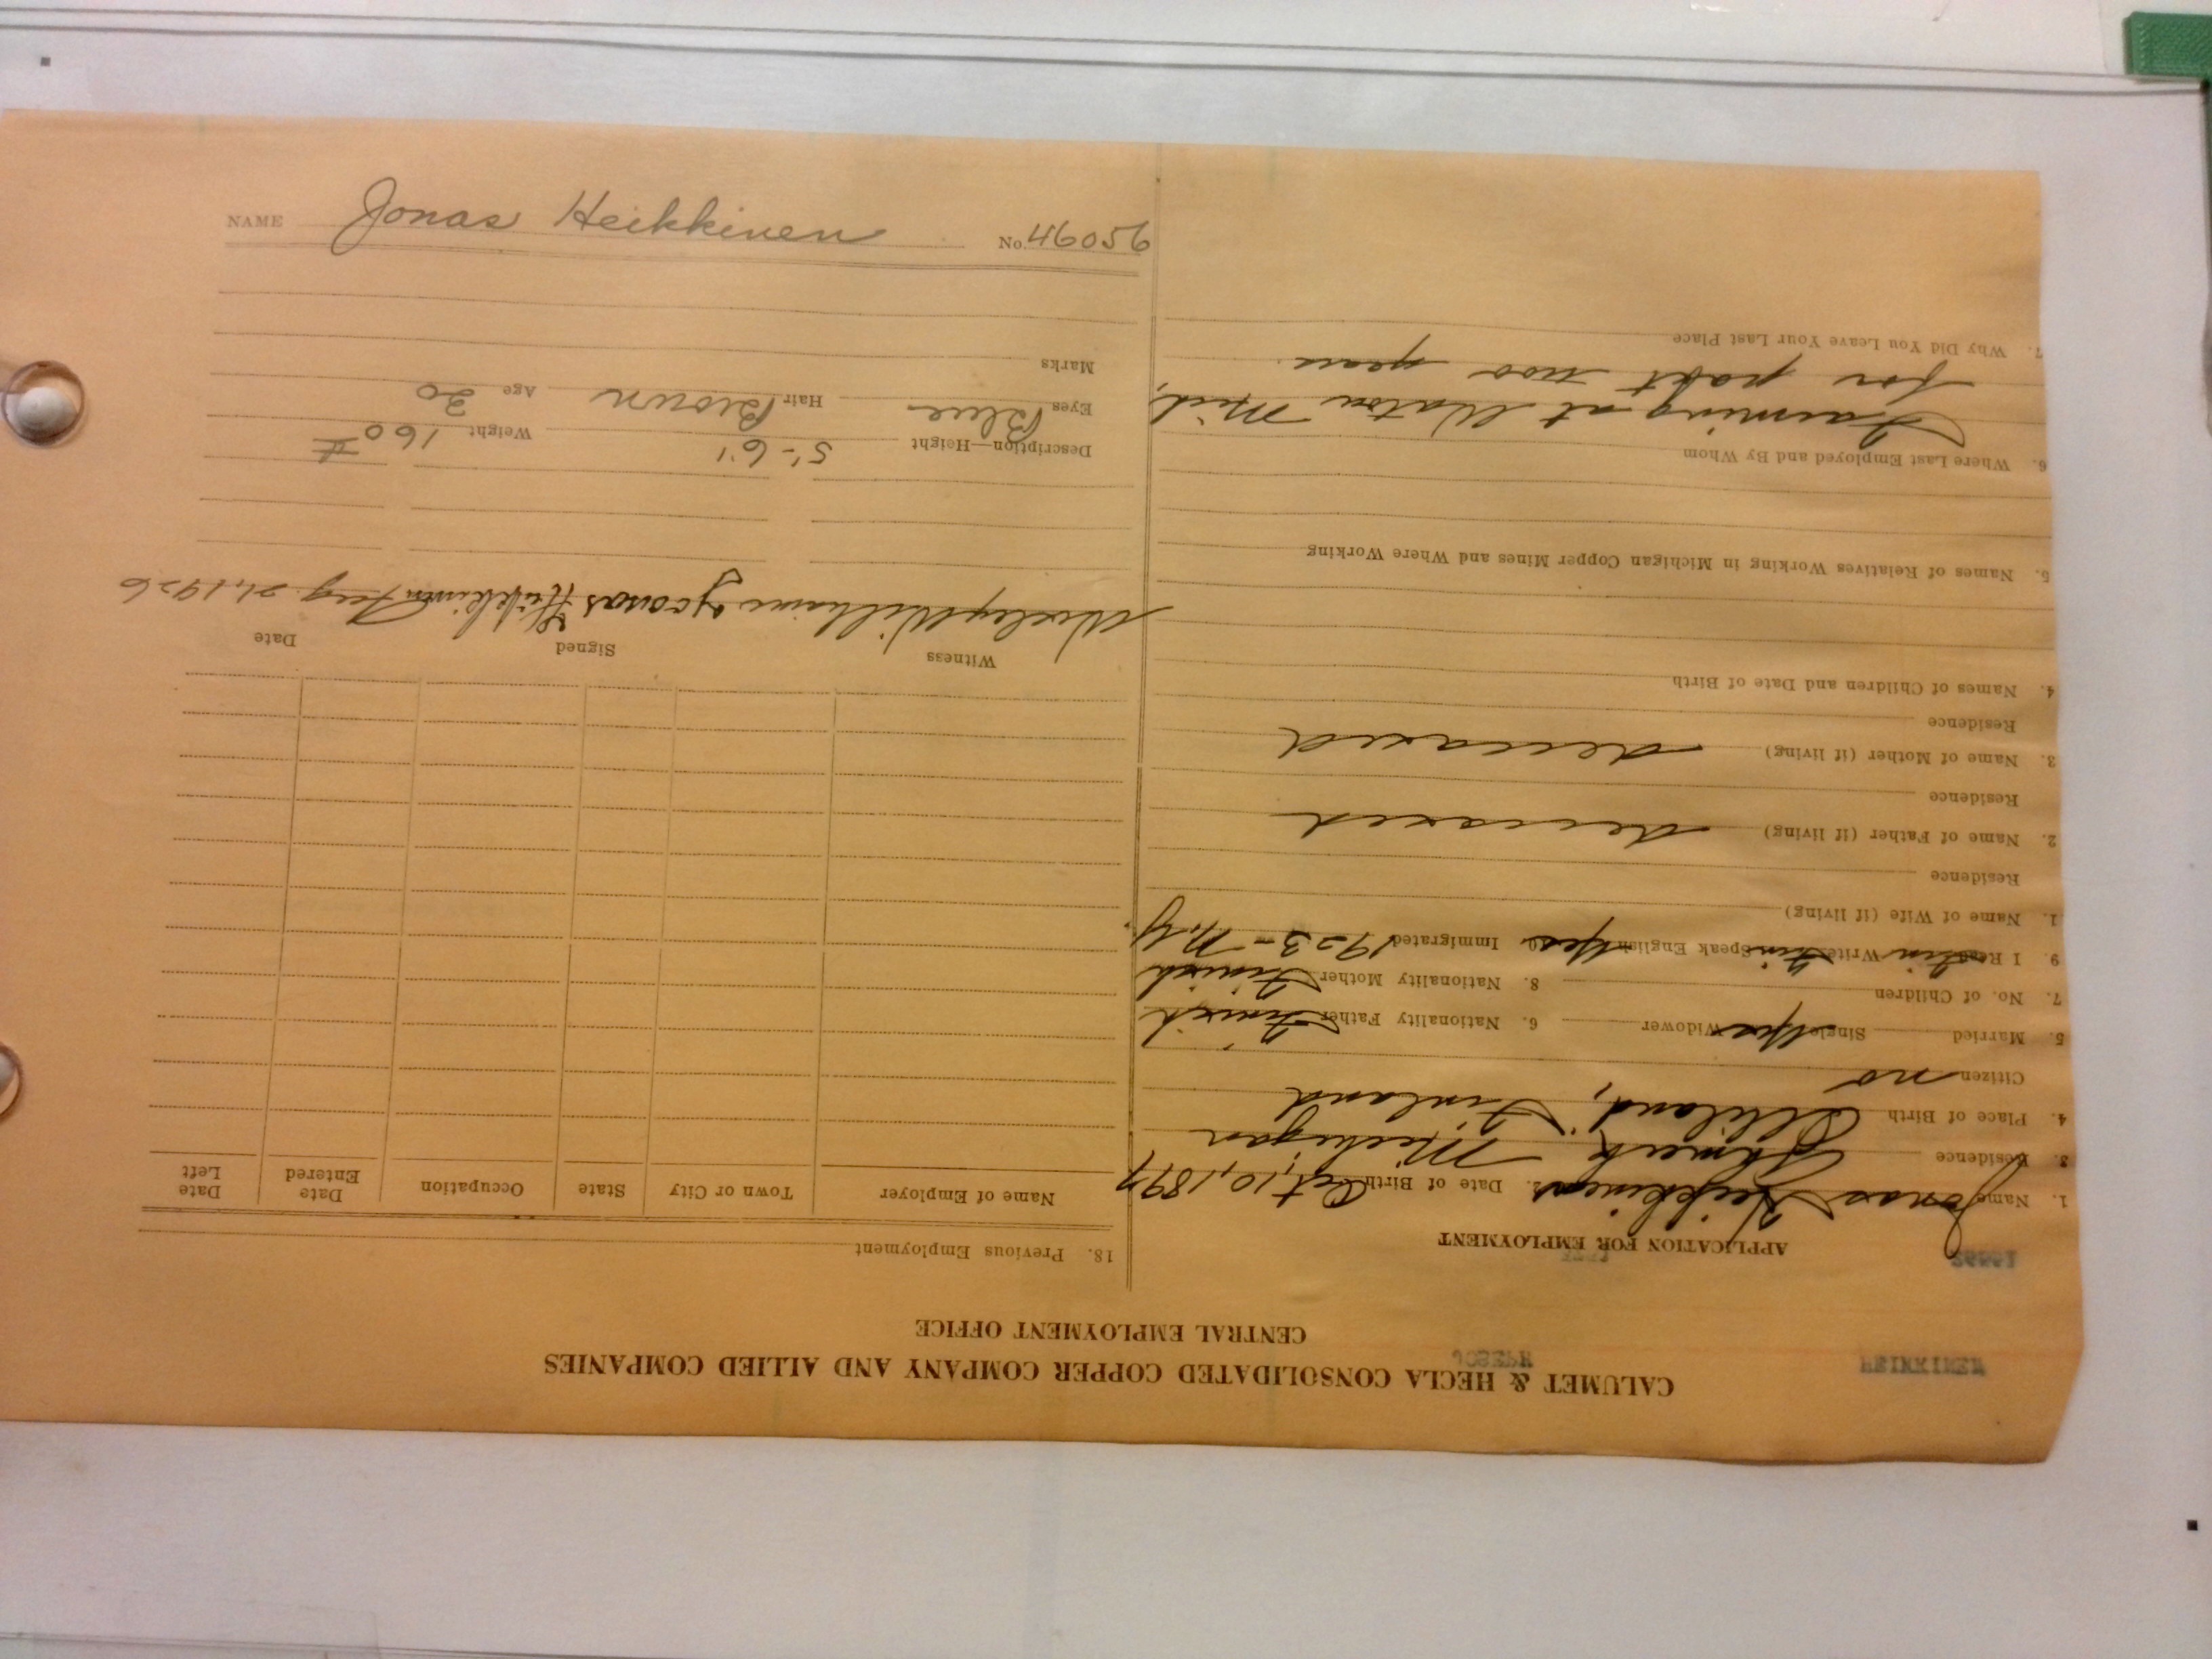 NAME Jonas Heikkinen No. 46056
CALUMET & HECLA CONSOLIDATED COPPER COMPANY AND ALLIED COMPANIES
CENTRAL EMPLOYMENT OFFICE
APPLICATION FOR EMPLOYMENT
1. Name Jonas Heikkinen 2. Date of Birth Oct 10, 1897
3. Residence Ahmeek, Michigan
4. Place of Birth Finland
Citizen no
5. Married Single Yes Widower 6. Nationality Father Finnish
7. No. of Children 8. Nationality Mother Finnish
9. I Read Fin Write Fin Speak English Yes 10. Immigrated 1923 - N.Y.
1. Name of Wife (if living)
Residence
2. Name of Father (if living) deceased
Residence
3. Name of Mother (if living) deceased
Residence
4. Names of Children and Date of Birth
5. Names of Relatives Working in Michigan Copper Mines and Where Working
6. Where Last Employed and By Whom
Farming at Mich,
for past two years.
7. Why Did You Leave Your Last Place
18. Previous Employment
Name of Employer Town or City State Occupation Date Entered Date Left
Witness Signed Date
Wesley Williams Joonas Heikkinen Aug 21, 1926
Description—Height 5'-6" Weight 160 #
Eyes Blue Hair Brown Age 30
Marks